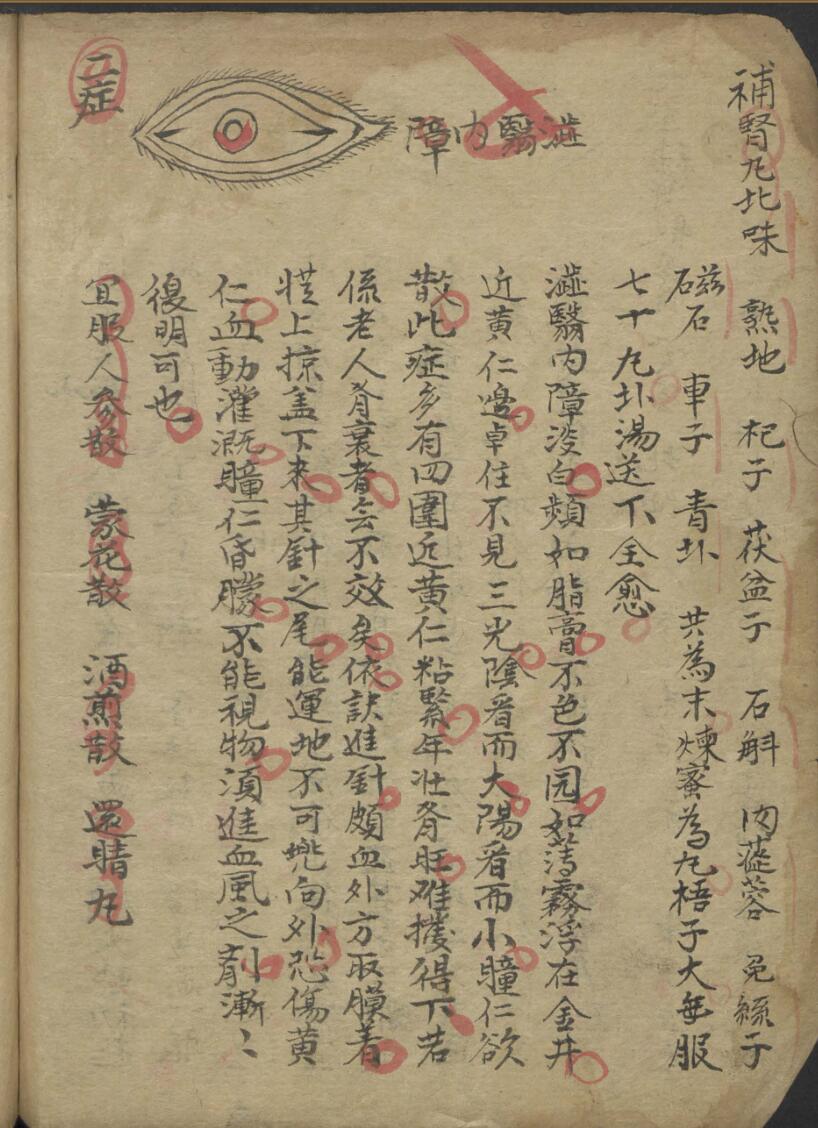 補腎九北味 熟地 杞子 茯盆子 石斛 肉蓯蓉 免絲子
磁石 車子 青圤 共為末煉蜜為九梧子大每服
七十九圤湯送下全愈
澁翳內障
澁翳內障淡白類如脂膏不色不园如薄霧浮在金井
近黃仁邊卓住不見三光陰看而大陽看而小瞳仁欲
散此症多有四圍近黃仁粘緊年壯肾旺难撥得下若
係老人肾衰者去不效矣依訣進針頗血外方取膜着
拦上掠盖下来其針之尾能運地不可兠向外恐傷黃
仁血動灌溉瞳仁昏朦不能視物湏進血風之劑漸〻
復明可也
二症
宜服人參散 蒙花散 洒煎散 還睛九